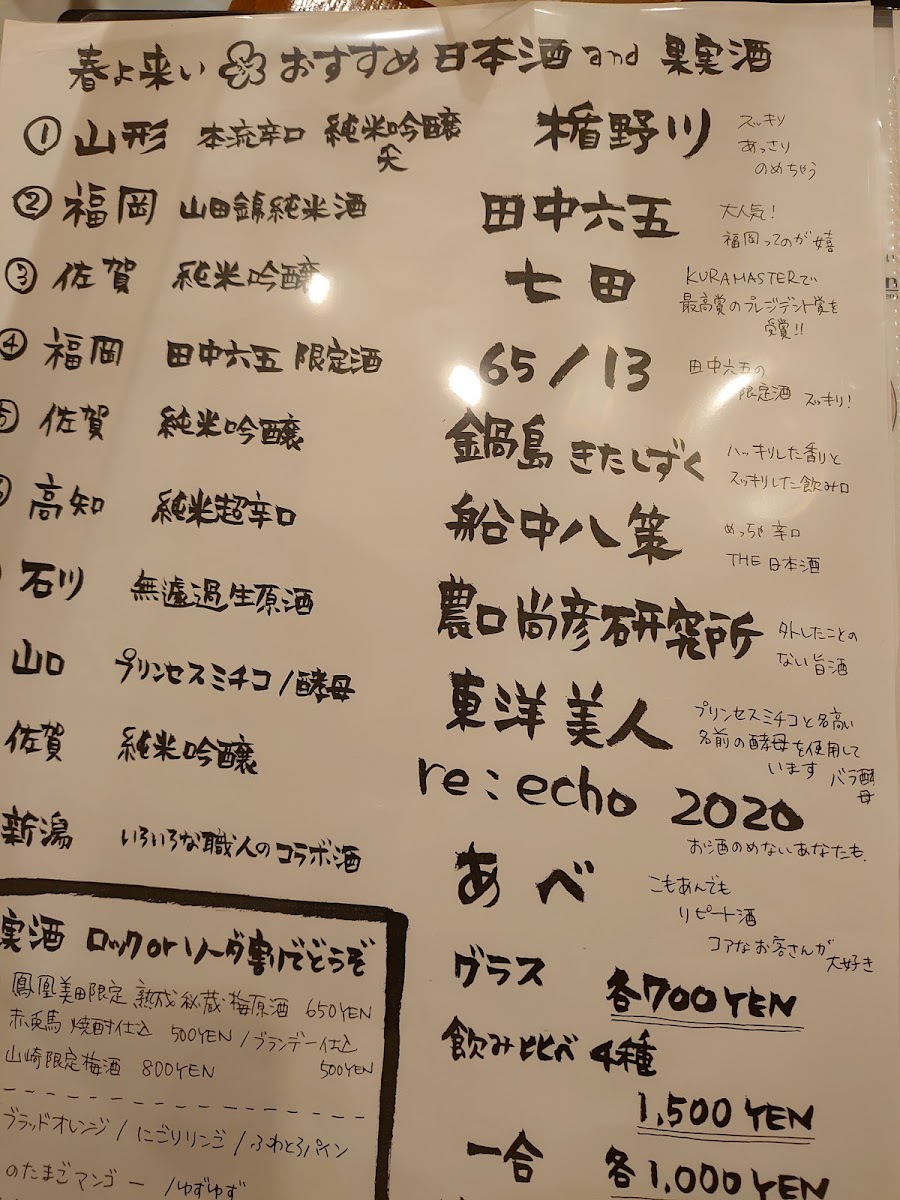 春よ来い おすすめ 日本酒 and 果実酒
① 山形 本流辛口 純米吟醸 楯野川 スッキリ
あっさり
のめちゃう
② 福岡 山田錦純米酒 田中六五 大人気!
福岡ってのが嬉
③ 佐賀 純米吟醸 七田 KURAMASTERで
最高賞のプレジデント賞を
受賞!!
④ 福岡 田中六五 限定酒 65/13 田中六五の
限定酒 スッキリ!
佐賀 純米吟醸 鍋島 きたしずく ハッキリした香りと
スッキリした飲み口
高知 純米超辛口 船中八策 めっちゃ辛口
THE 日本酒
石川 無濾過生原酒 農口尚彦研究所 外したことの
ない旨酒
山口 プリンセスミチコ/酵母 東洋美人 プリンセスミチコと名高い
名前の酵母を使用して
います バラ酵
母
佐賀 純米吟醸 re:echo 2020
お酒のめないあなたも.
新潟 いろいろな職人のコラボ酒 あべ
リピート酒
コアなお客さんが
大好き
実酒 ロック or ソーダ割でどうぞ
鳳凰美田限定 熟成秘蔵・梅原酒 650YEN
赤兎馬 焼酎仕込 500YEN / ブランデー仕込
500YEN
山崎限定梅酒 800YEN
ブラッドオレンジ / にごりリンゴ / ふわとろパイン
のたまごマンゴー / ゆずゆず
グラス 各700YEN
飲み比べ 4種
1,500 YEN
一合 各1,000 YEN